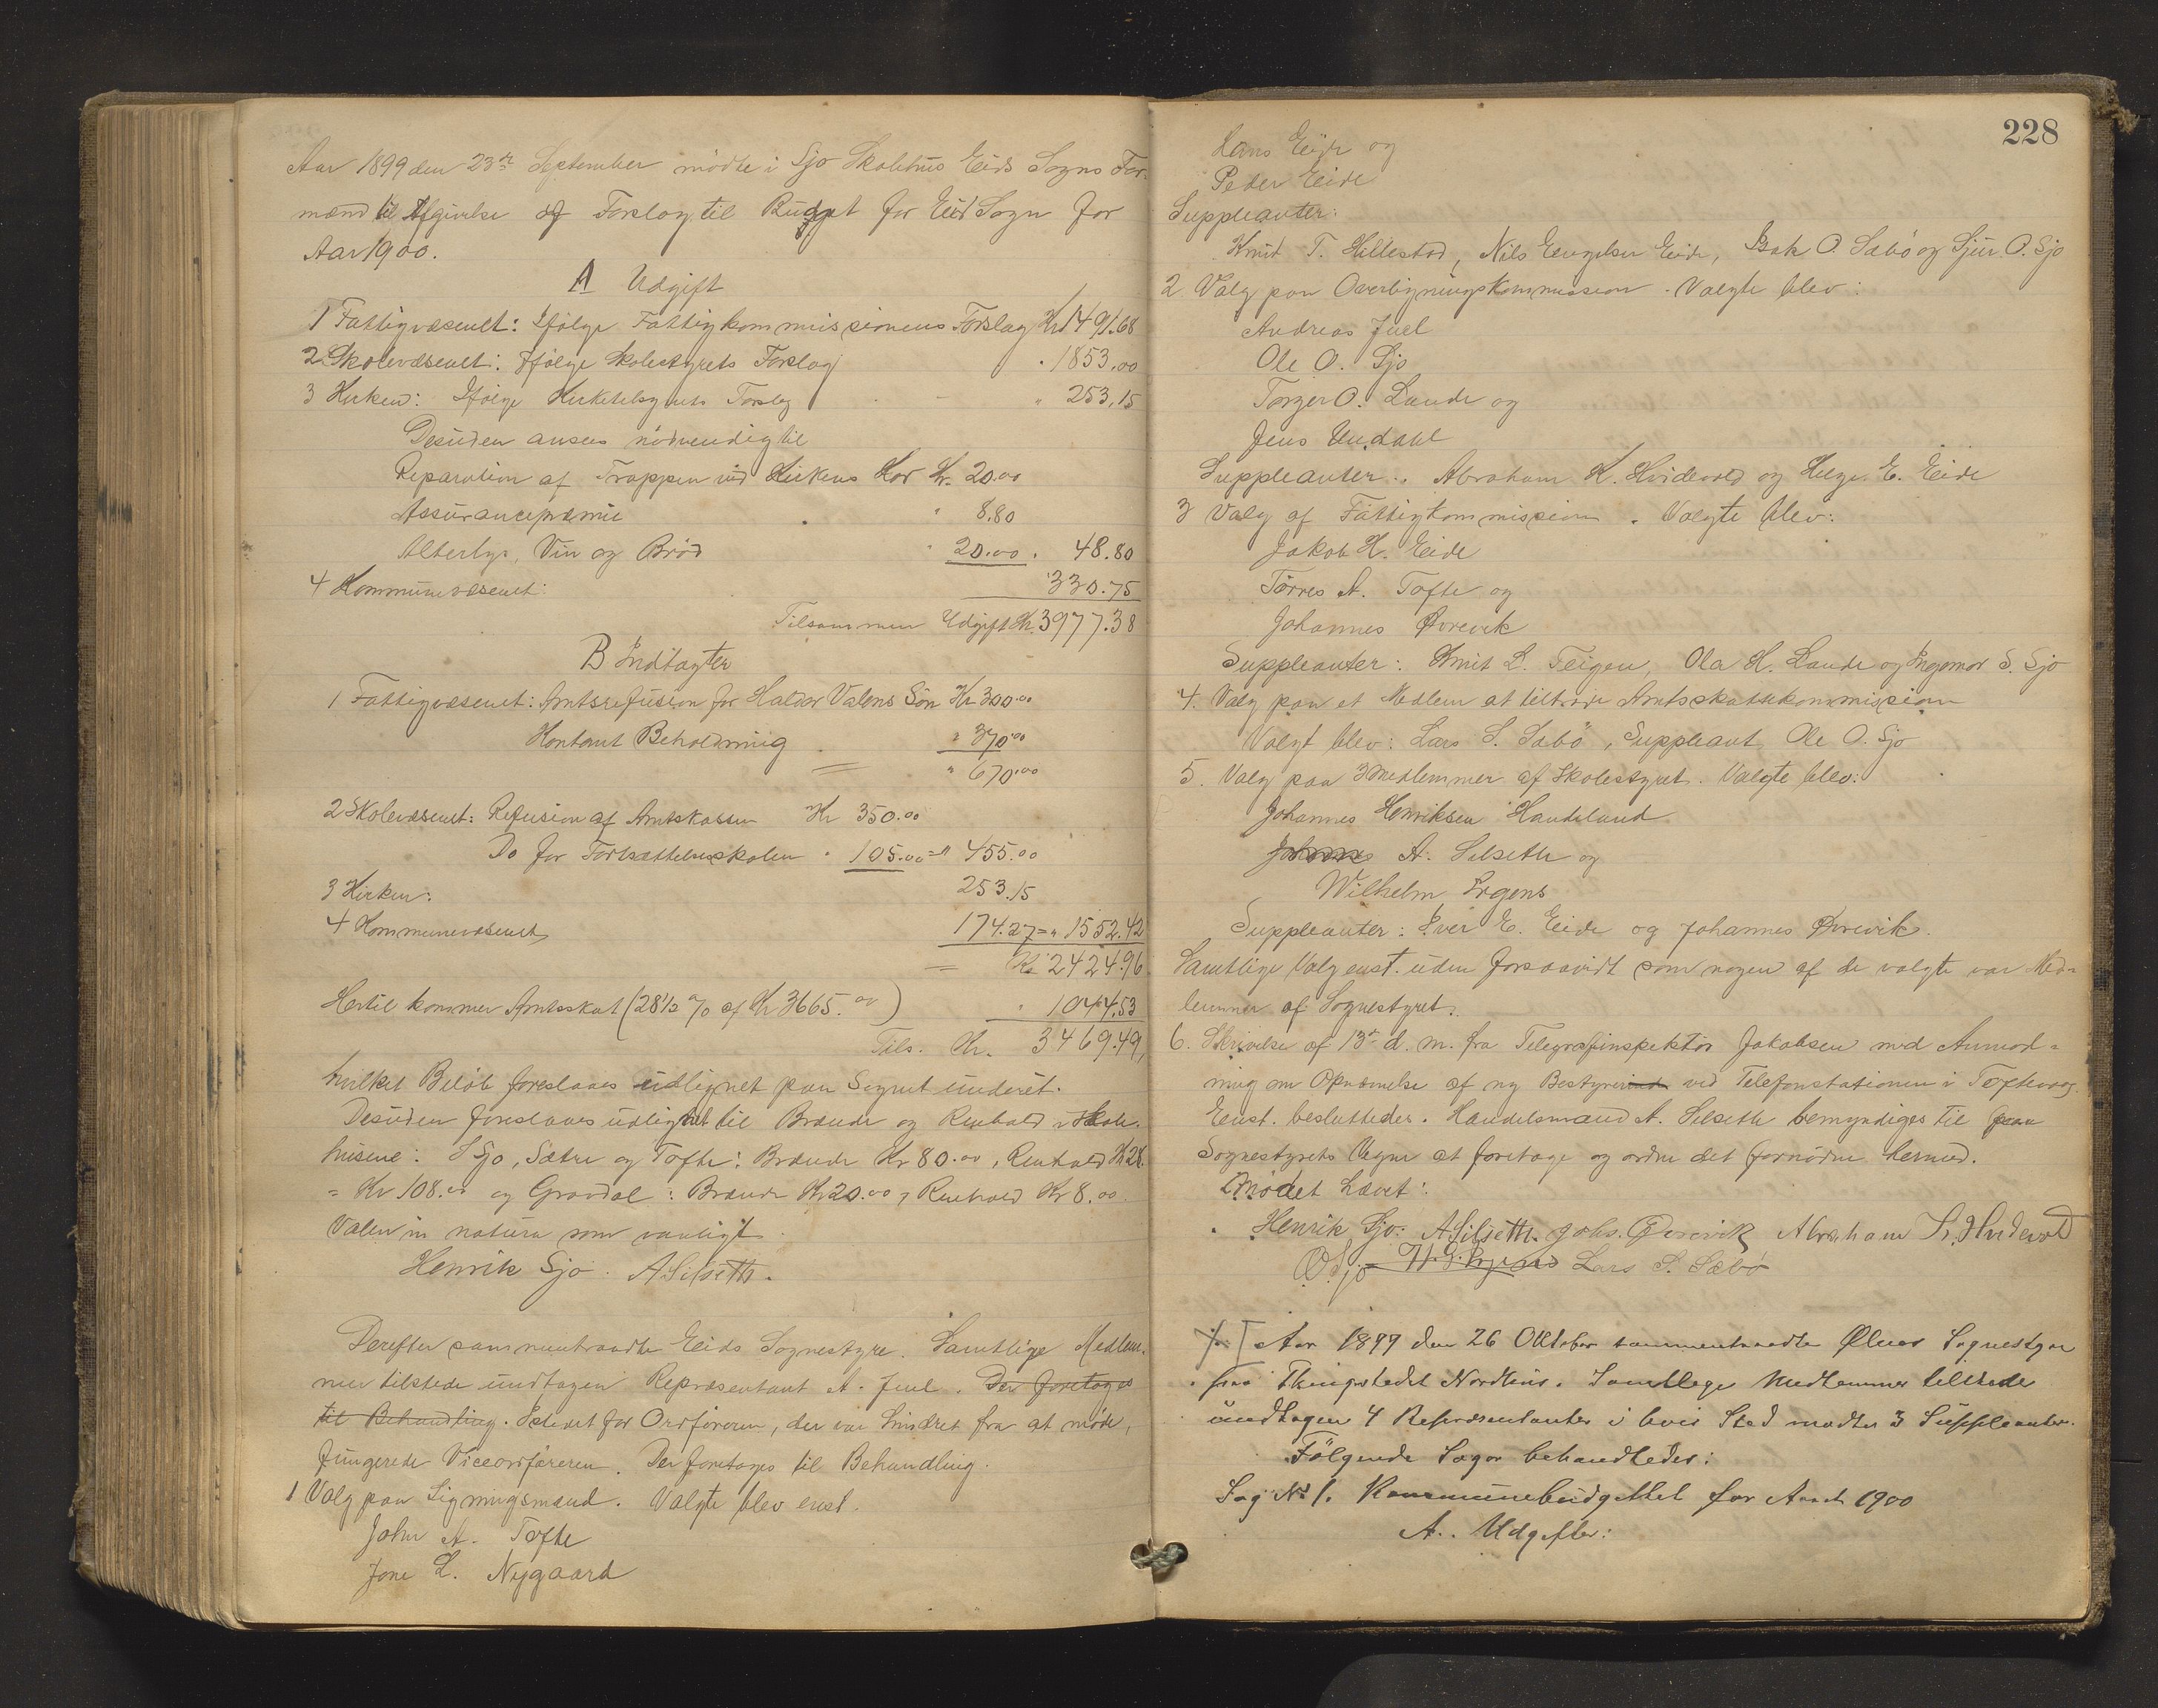 Aar 1899 den 23de September mødte i Sjo Skolehus Eids Sogns For-
mænd til Afgivelse af Forslag til Budget for Eid Sogn for
Aar 1900.
A Udgift
1 Fattigvæsenet: Ifølge Fattigkommissionens Forslag Kr 1491.68
2 Skolevæsenet: Ifølge Skolestyrets Forslag " 1853.00
3 Kirken: Ifølge Kirketilsynets Forslag " 253,15
Desuden ansees nødvendig til
Reparation af Trappen ved Kirkens Kor Kr. 20.00
Assurancepræmie " 8.80
Alterlys, Vin og Brød " 20.00 " 48.80
4 Kommunevæsenet: 330.75
Tilsammen Udgift Kr. 3977.38
B Indtægter
1 Fattigvæsenet: Amtsrefusion for Haldor Valens Søn Kr 300.00
Kontant Beholdning " 370.00
= " 670.00
2 Skolevæsenet: Refusion af Amtskassen Kr 350.00
Do for Fortsættelsesskolen " 105.00 = " 455.00
3 Kirken: 253.15
4 Kommunevæsenet 174.27 = " 1552.42
= Kr 2424.96
Hertil kommer Amtsskat (28½ % af Kr 3665.00) " 1044.53
Tils. Kr. 3469.49,
hvilket Beløb foreslaaes udlignet paa Sognet underét.
Desuden foreslaaes udlignet til Brænde og Renhold i Skole-
husene: I Sjo, Sætre og Tofte: Brænde Kr 80.00, Renhold Kr 28.
= Kr 108.00 og Grovdal: Brænde Kr 20.00, Renhold Kr 8.00.
Valen in natura som vanligt.
Henrik Sjo. A Silseth.
Derefter sammentraadte Eids Sognestyre. Samtlige Medlem-
mer tilstede undtagen Repræsentant A. Juel. Der foretages
til Behandling. Istedet for Ordføreren, der var hindret fra at møde,
fungerede Viceordføreren. Der foretages til Behandling.
1 Valg paa Ligningsmænd. Valgte blev enst.
John A. Tofte
Jone L. Nygaard
228
Lars Eide og
Peder Eide
Suppleanter:
Knut T. Hillestad, Nils Engelsen Eide, Isak O. Sæbø og Sjur O. Sjo
2 Valg paa Overligningskommission. Valgte blev:
Andreas Juel
Ole O. Sjo
Torger O. Lande og
Jens Undahl
Suppleanter: Abraham K. Hvidevold og Helge E. Eide
3 Valg af Fattigkommission. Valgte blev:
Jakob H. Eide
Tørres A. Tofte og
Johannes Øvrevik
Suppleanter: Knut L. Teigen, Ola H. Lande og Ingemor S. Sjo
4. Valg paa et Medlem at tiltræde Amtsskattekommission
Valgt blev: Lars S. Sæbø, Suppleant Ole O. Sjo
5. Valg paa 3 Medlemmer af Skolestyret. Valgte blev:
Johannes Henriksen Handeland
Johannes A. Silseth og
Wilhelm Irgens
Suppleanter: Iver E. Eide og Johannes Øvrevik.
Samtlige Valg enst. uden forsaavidt som nogen af de valgte var Med-
lemmer af Sognestyret.
6. Skrivelse af 13de d. m. fra Telegrafinspektør Jakobsen med Anmod-
ning om Opnævnelse af ny Bestyrerinde ved Telefonstationen i Toftevaag.
Enst. besluttedes. Handelsmand A. Silseth bemyndiges til paa
Sognestyrets Vegne at foretage og ordne det fornødne hermed.
Mødet hævet.
Henrik Sjo. A Silseth. Johs. Øvrevik Abraham K. Hvidevold
O Sjo W. S. Irgens Lars S. Sæbø
Aar 1899 den 26 Oktober sammentraadte Ølens Sognestyre
paa Thingstedet Nordhus. Samtlige Medlemmer tilstede
undtagen 4 Repræsentanter i hvis Sted mødte 3 Suppleanter.
Følgende Sager behandledes:
Sag No 1. Kommunebudgettet for Aaret 1900
A. Udgifter: